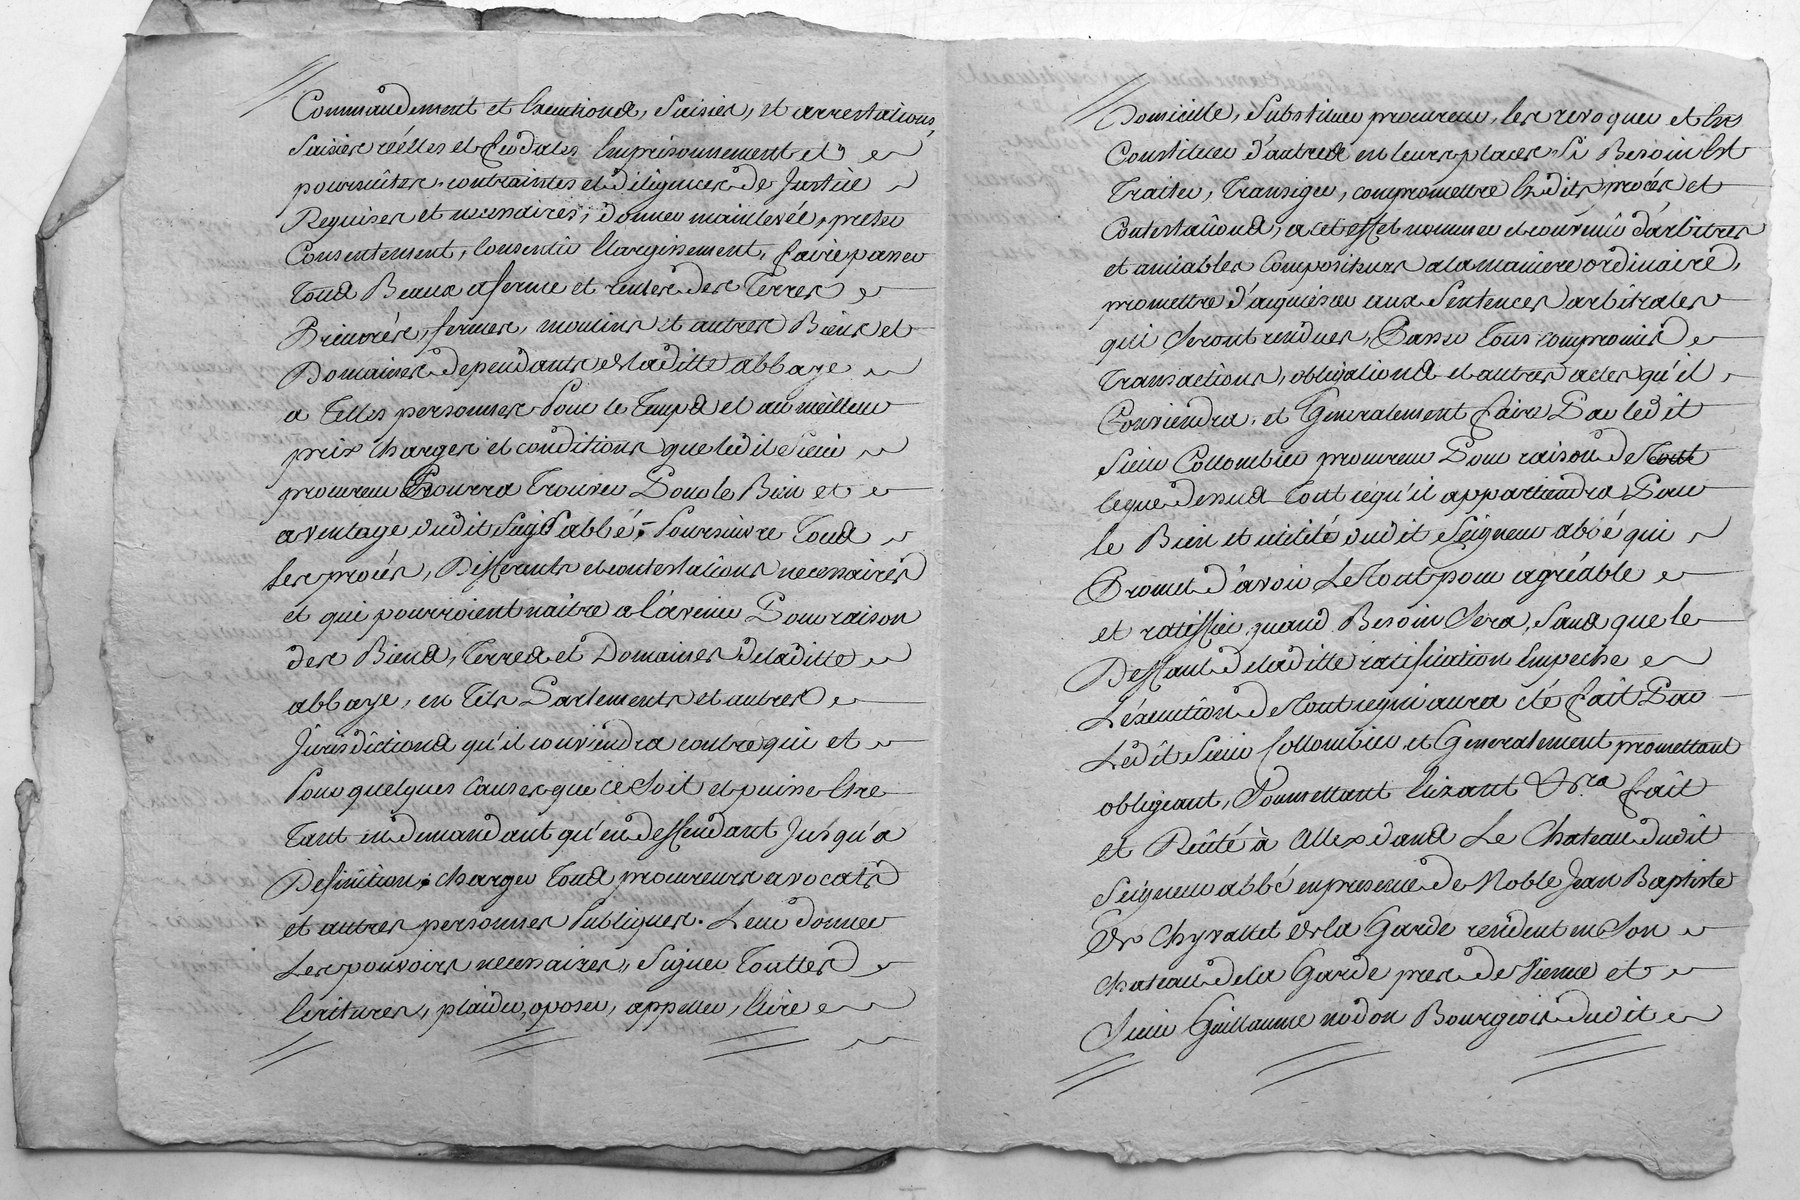 Commandement et Executions, Saisies, et arrestations,
Saisies réélles et féodales Emprisonnement et
poursuites, contraintes et diligences de Justice
Requises et necessaires, donner mainlevée, prester
Consentement, Consentir Elargissement, faire passer
Tous Beaux aferme et rentes des Terres
Prieurés, fermes, moulins et autres Biens et
Domaines dependants de laditte abbaye
a Telles personnes Pour le Temps et au meilleur
prix charges et conditions que ledit Sieur
procureur Pourra Trouver Pour le Bien et
aventage dudit Seigr abbé, Poursuivre Tous
les procés, Differants et contestations necessaires
et qui pourroient naitre a l'avenir Pour raison
des Biens, Terres et Domaines de laditte
abbaye, en Tels Parlements et autres
Jurisdictions qu'il conviendra contre qui et
Pour quelques Causes que ce Soit et puisse Etre
Tant en demandant qu'en deffendant Jusqu'a
Definition, charger Tous procureurs avocats
et autres personnes Publiques. Leur donner
Les pouvoirs necessaires, Signer Touttes
Ecritures, plaider, oposer, appeller, Elire
Domicille, Substituer procureur, les revoquer et En
Constituer d'autres en leurs places Si Besoin Est
Traiter, Transiger, compromettre Esdits procés et
Contestations, a cet effet nommer et convenir d'arbitres
et amiables Compositeurs a la maniere ordinaire,
promettre d'acquiescer aux Sentences arbitrales
qui Seront rendues, Passer Tous compromis
Transactions, obligations et autres actes qu'il
Conviendra, et Generalement faire Par ledit
Sieur Collombier procureur Pour raison de Tout
Ce que dessus Tout ce qu'il appartiendra Pour
le Bien et utilité dudit Seigneur abbé qui
Promet d'avoir Le Tout pour agréable
et ratiffier quand Besoin Sera, Sans que le
Deffaut de laditte ratification Empeche
L'éxécution de Tout ce qui aura été fait Par
Ledit Sieur Collombier et Generalement promettant
obligeant, Soumettant fait
et Récité à Allex dans Le Chateau dudit
Seigneur abbé en presence de Noble Jean Baptiste
De Chyvallet de la Garde resident en Son
Chateau de la Garde pres de Vienne et
Sieur Guillaume nodon Bourgeois dudit